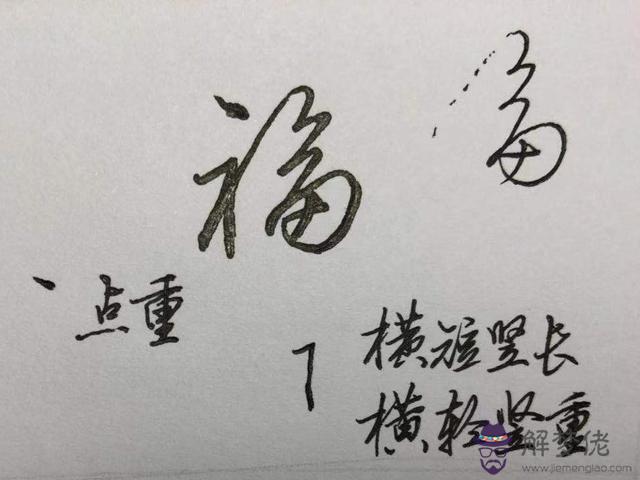 福
畐
点重
横短竖长
横轻竖重
解梦佬
www.jiemenglao.com